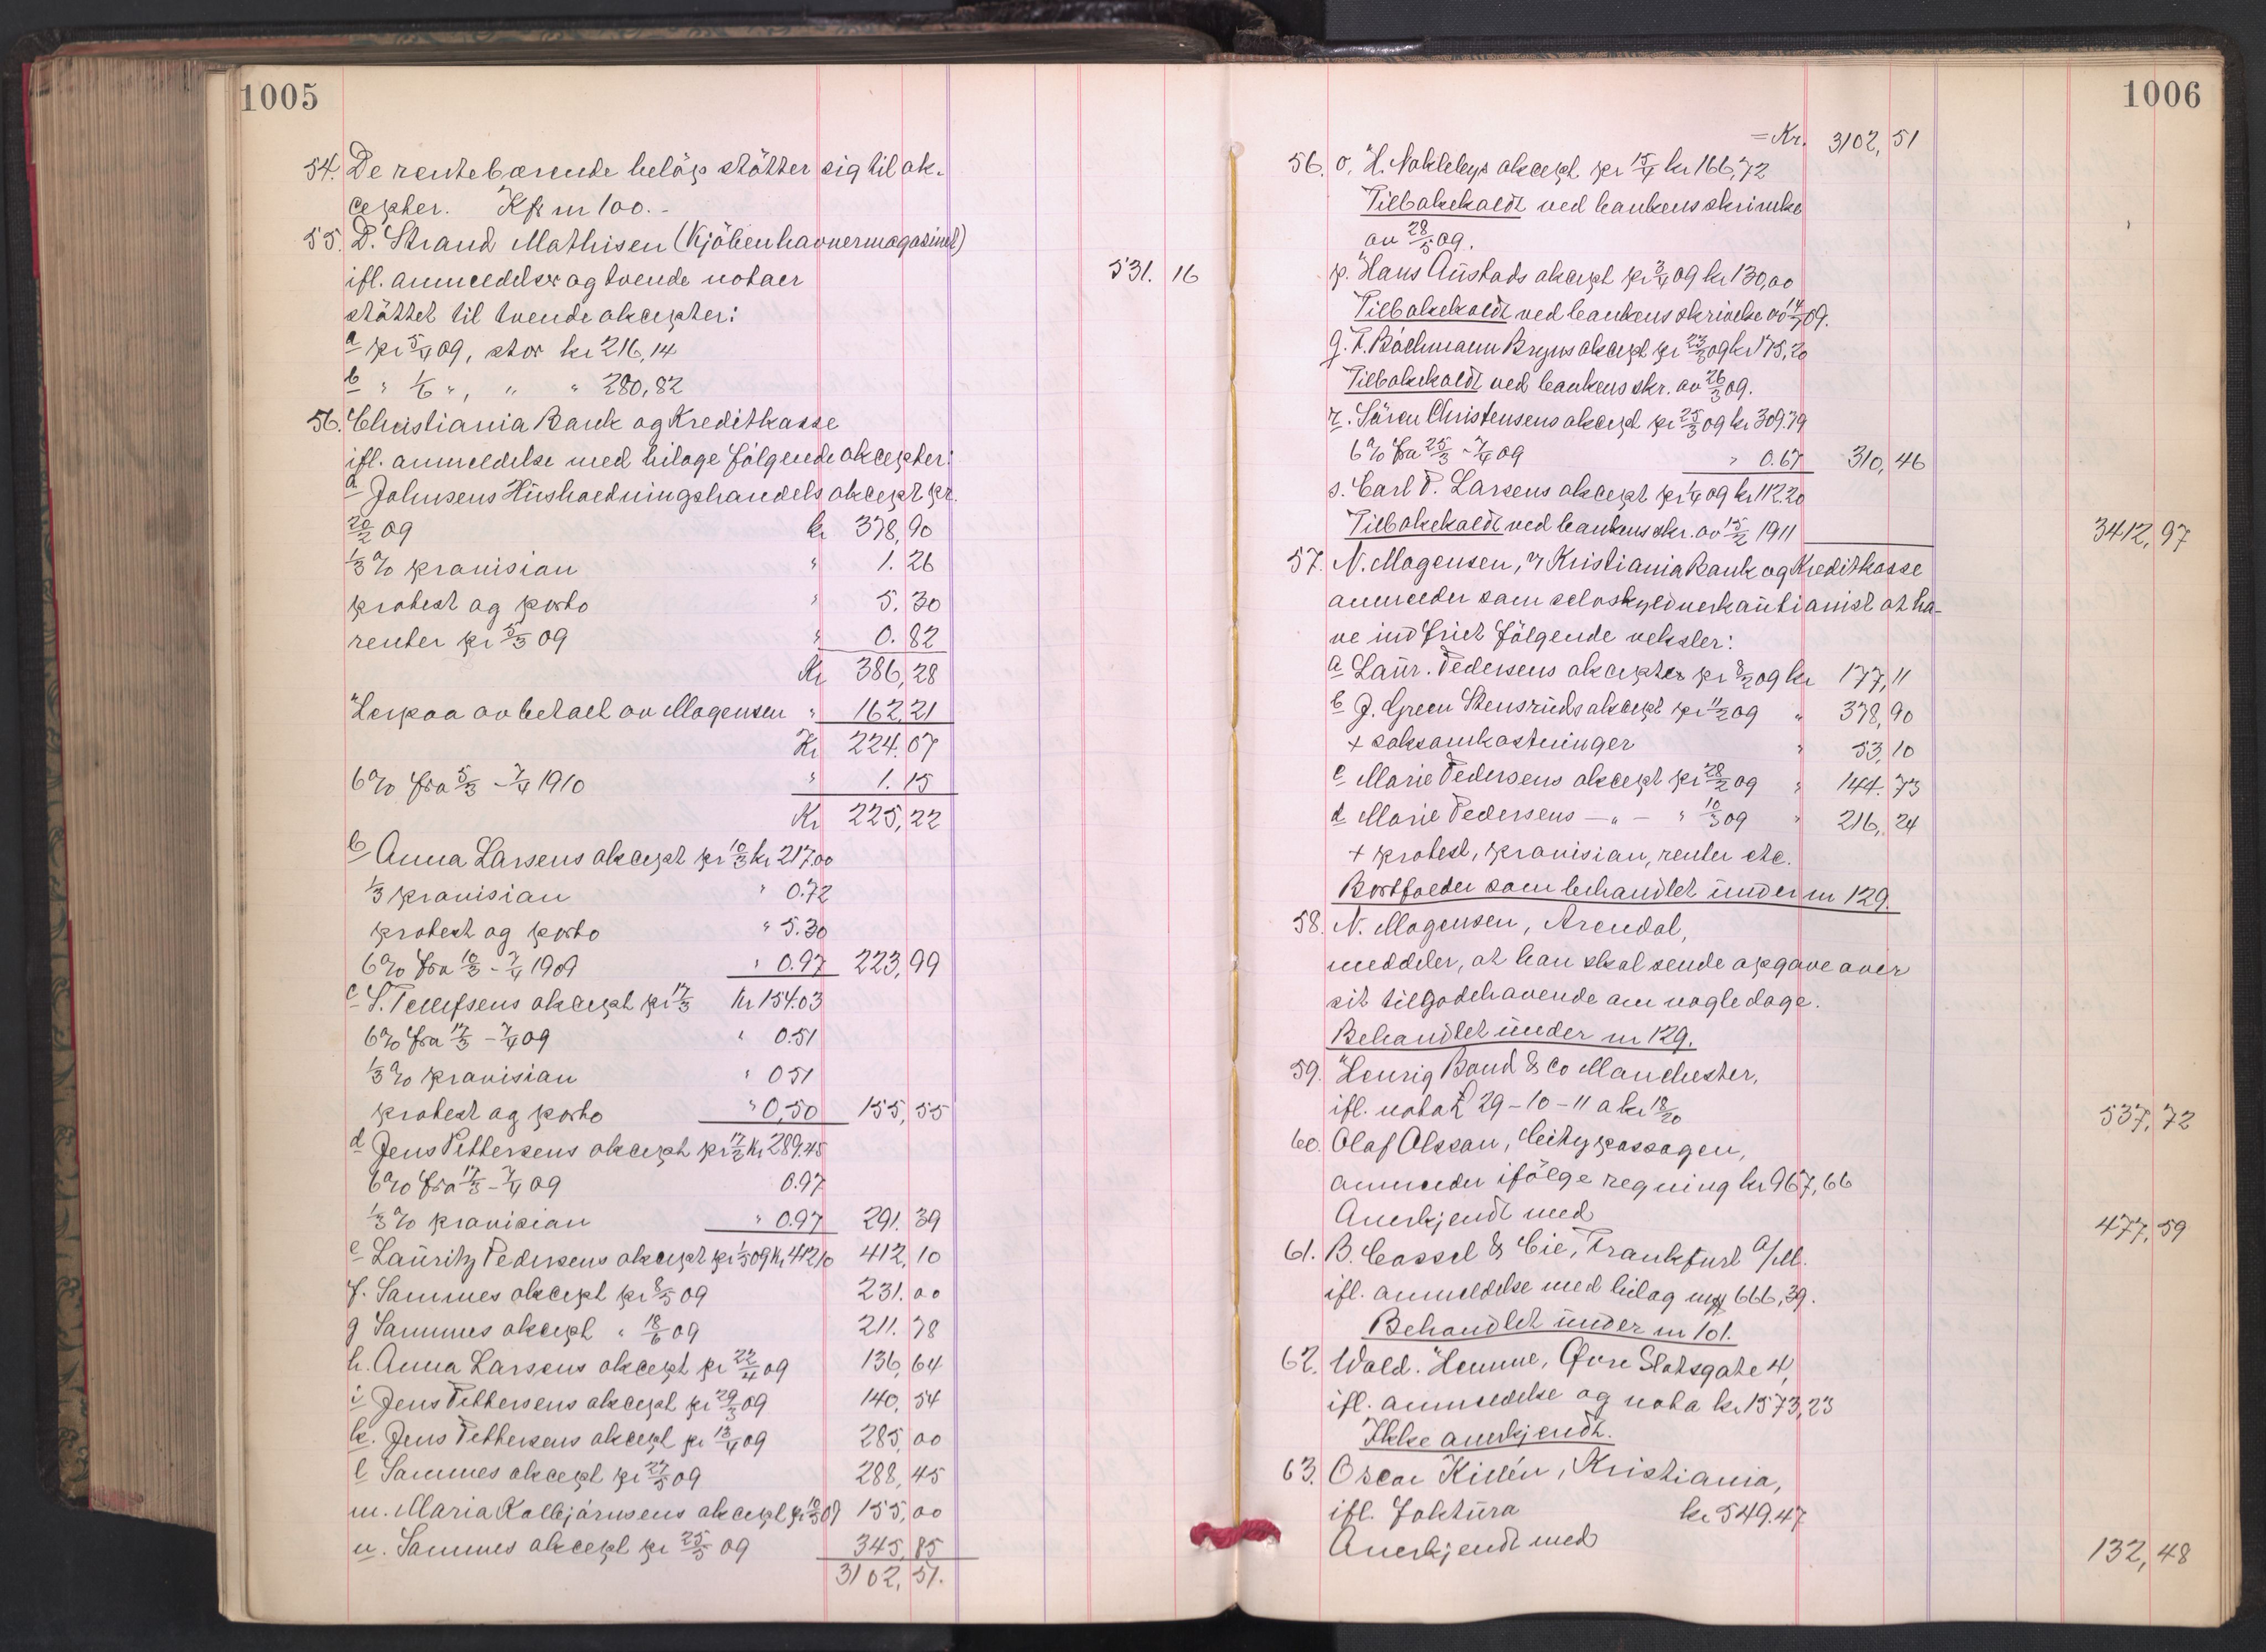 1005
54. De rentebærende beløp støtter sig til ak-
cepter. Kfr nr 100.-
55. D. Strand Mathisen (Kjøbenhavnermagasinet)
ifl. anmeldelse og tvende notaer 531.16
støttet til tvende akcepter:
a pr 5/4 09, stor kr 216,14
b " 1/6 ", " " 280,82
56. Christiania Bank og Kreditkasse
ifl. anmeldelse med bilage følgende akcepter:
a Johnsens Husholdningshandels akcept pr.
20/2 09 kr 378,90
1/3 % provision " 1.26
protest og porto " 5.30
renter pr 5/3 09 " 0.82
Kr 386,28
Herpaa avbetalt av Mogensen " 162,21
Kr 224.07
6% fra 5/3 - 7/4 1910 " 1.15
Kr 225,22
b Anna Larsens akcept pr 10/3 kr 217.00
1/3 provision " 0.72
protest og porto " 5.30
6% fra 10/3 - 7/4 1909 " 0.97 223,99
c S. Tellefsens akcept pr 17/3 Kr 154.03
6% fra 17/3 - 7/4 09 " 0.51
1/3 % provision " 0 51
protest og porto " 0,50 155,55
d Jens Pettersens akcept pr 17/2 Kr 289.45
6% fra 17/3 - 7/4 09 0.97
1/3 % provision " 0.97 291.39
e Lauritz Pedersens akcept pr 1/5 09 Kr 412 10 412,10
f. Sammes akcept pr 8/5 09 231.00
g Sammes akcept " 18/6 09 211.78
h. Anna Larsens akcept pr 22/4 09 136,64
i Jens Pettersens akcept pr 29/3 09 140,54
k. Jens Pettersens akcept pr 13/4 09 285,00
l Sammes akcept pr 27/5 09 288,45
m. Maria Kolbjørnsens akcept pr 18/5 09 155,00
n. Sammes akcept pr 25/5 09 345,85
3102,51.
1006
= Kr. 3102,51
56. o. H. Noklebys akcept pr 15/4 kr 166,72
Tilbakekaldt ved bankens skrivelse
av 28/5 09.
p. Hans Austads akcept pr 3/4 09 kr 130,00
Tilbakekaldt ved bankens skrivelse av 14/7 09.
q. F. Bachmann Bryns akcept pr 23/3 09 kr 175,20
Tilbakekaldt ved bankens skr. av 26/3 09.
r. Søren Christensens akcept pr 25/3 09 kr 309.79
6% fra 25/3 - 7/4 09 " 0.67 310,46
s. Carl P. Larsens akcept pr 1/4 09 kr 112.20
Tilbakekaldt ved bankens skr. av 15/2 1911 3412,97
57. N. Mogensen, v/ Kristiania Bank og Kreditkasse
anmelder som selvskyldnerkautionist at ha-
ve indfriet følgende veksler:
a Laur. Pedersens akcepter pr 8/2 09 kr 177,11
b J. Green Stensruds akcept pr 11/2 09 " 378,90
+ saksomkostninger " 53,10
c Marie Pedersens akcept pr 28/2 09 " 144.73
d Marie Pedersens -"- " 10/3 09 " 216,24
+ protest, provision, renter etc.
Bortfalder som behandlet under nr 129.
58. N. Mogensen, Arendal,
meddeler, at han skal sende opgave over
sit tilgodehavende om nogle dage.
Behandlet under nr 129.
59. Henrig Band & Co Manchester,
ifl. nota £ 29-10-11 a kr 18/20 537,72
60. Olaf Olsson, Citypassagen,
anmelder ifølge regning kr 967,66
Anerkjendt med 477,59
61. B. Cassel & Cie, Frankfurt a/M.
ifl. anmeldelse med bilag mrk 666,39.
Behandlet under nr 101.
62. Wald. Hemme, Øvre Slotsgate 4,
ifl. anmeldelse og nota kr 1573,23
Ikke anerkjendt.
63. Oscar Killén, Kristiania,
ifl. faktura kr 549.47
Anerkjendt med 132,48